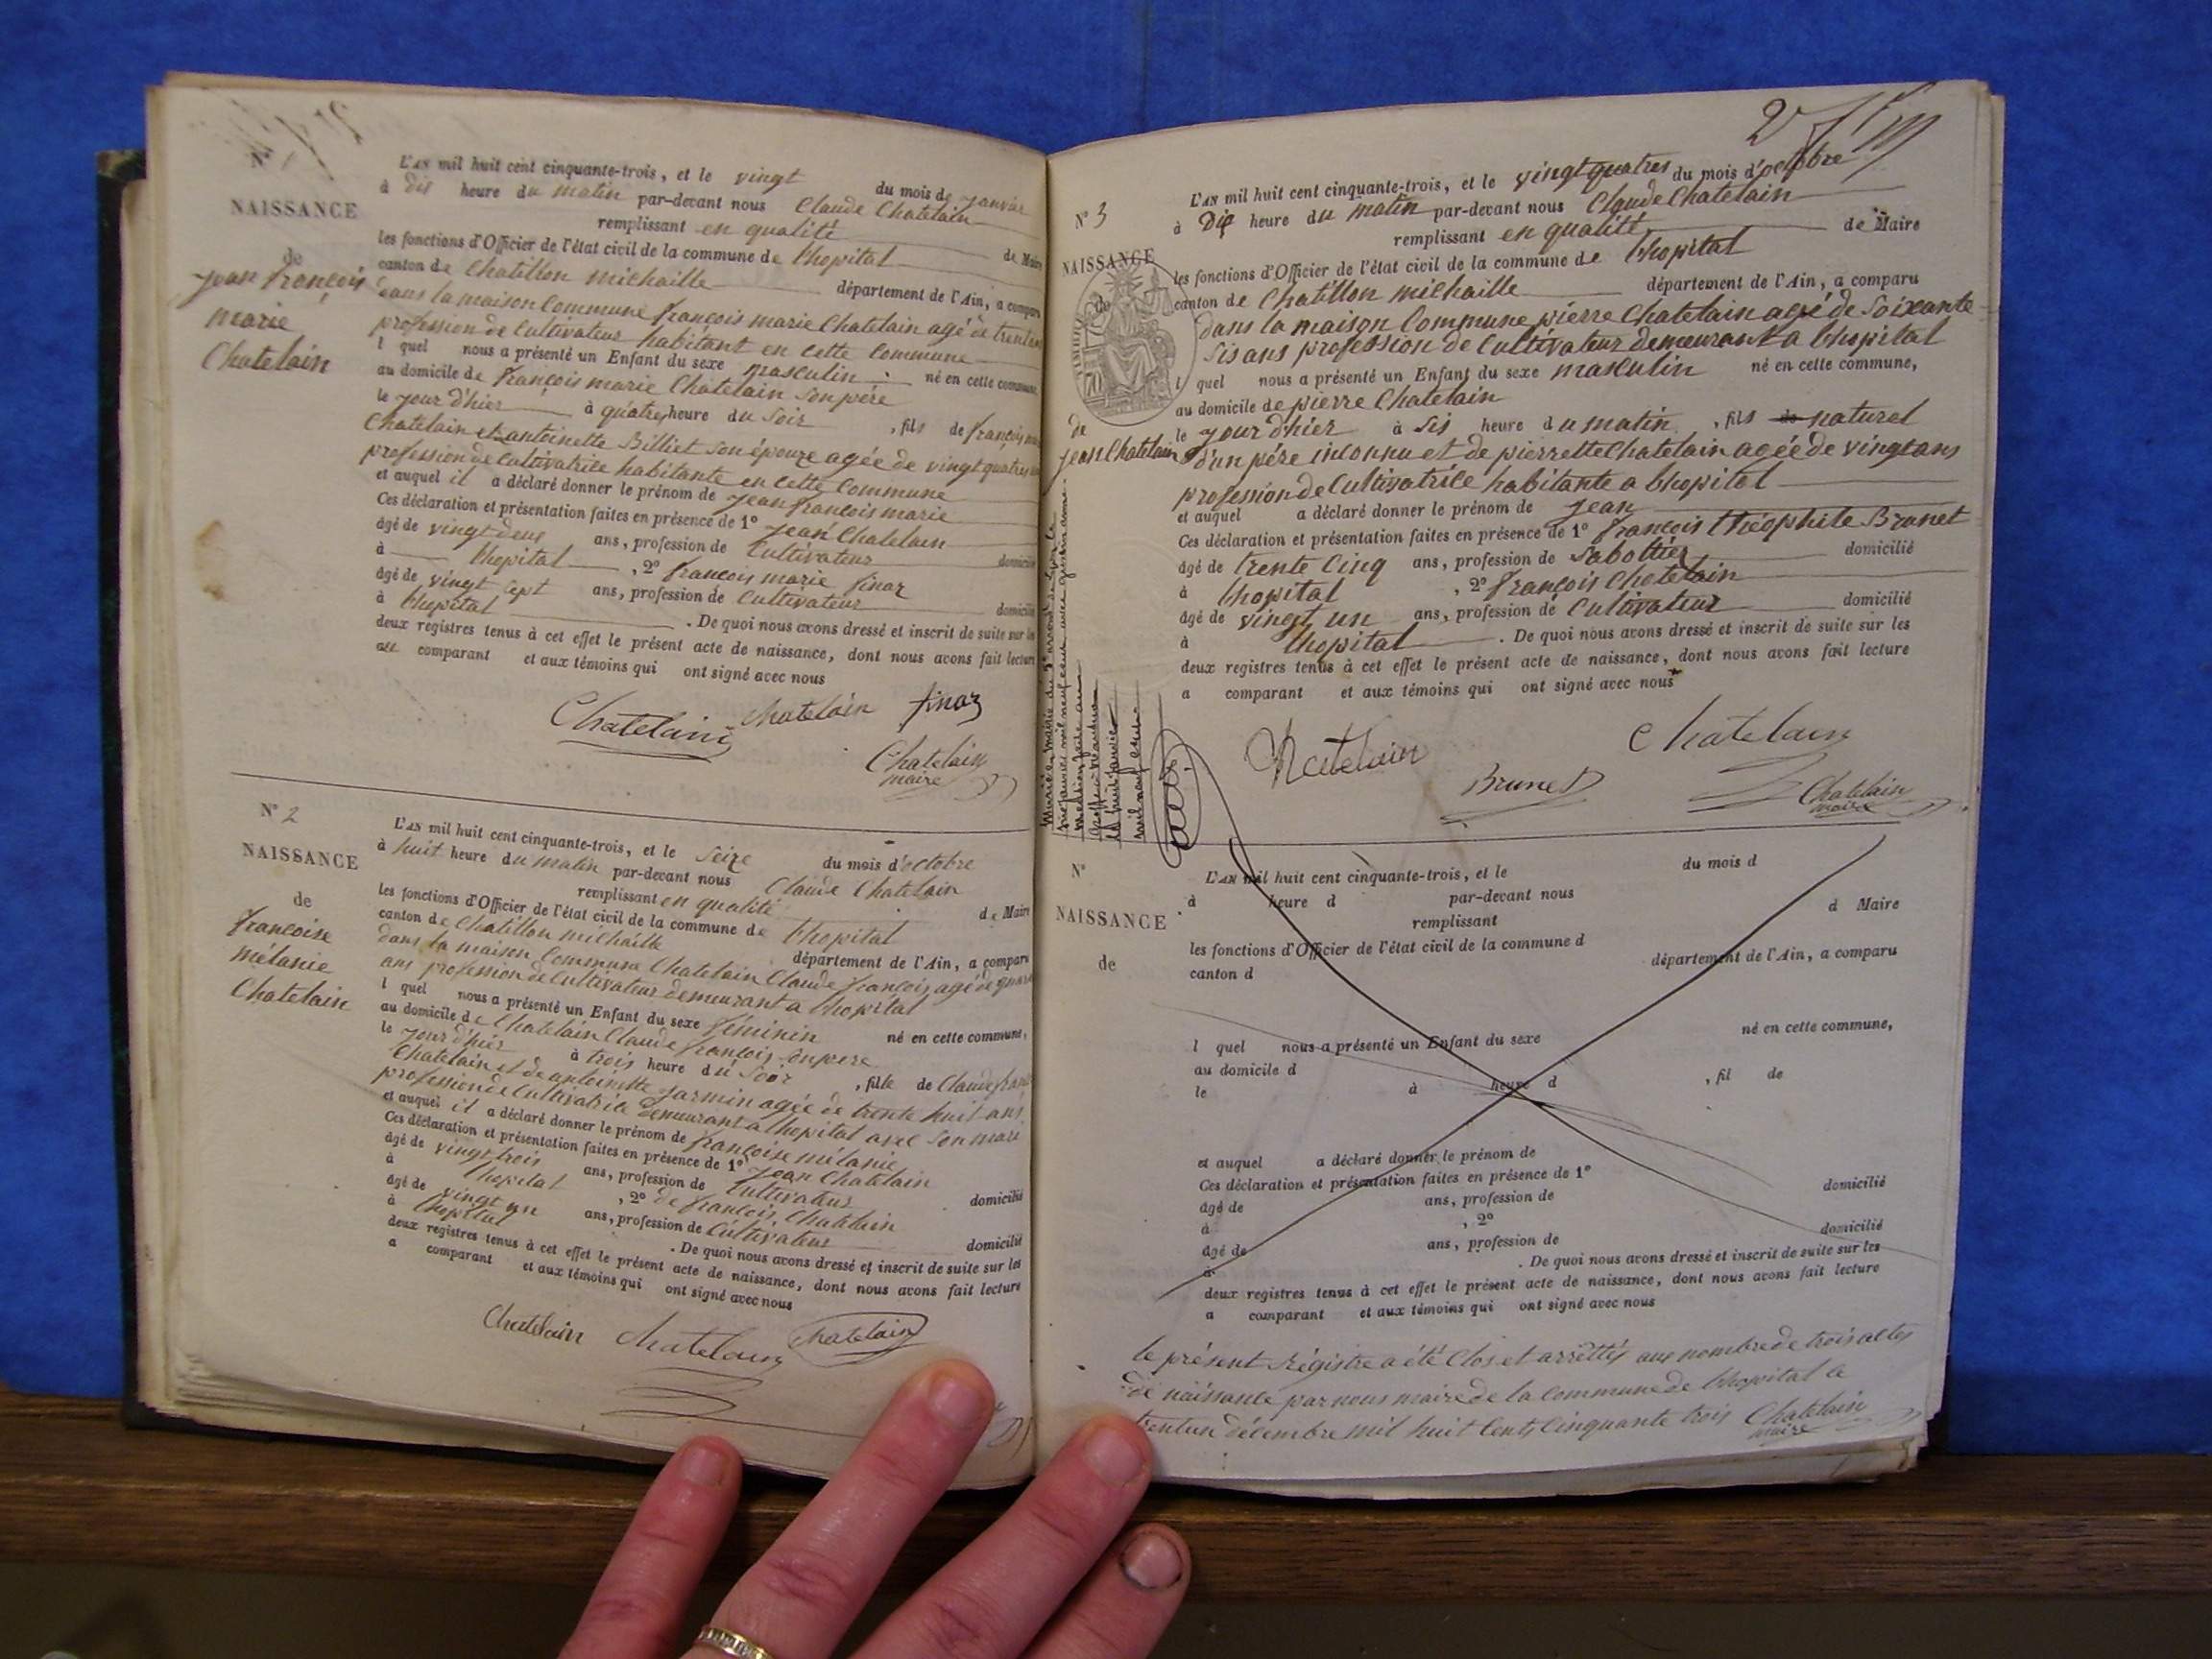 N° 1
NAISSANCE
de
jean françois
marie
Chatelain
L'AN mil huit cent cinquante-trois, et le vingt du mois de janvier
à dis heure du matin par-devant nous Claude Chatelain
remplissant en qualité de Maire
les fonctions d'Officier de l'état civil de la commune de lhopital
canton de Chatillon michaille département de l'Ain, a comparu
dans la maison Commune françois marie Chatelain agé de trente
profession de Cultivateur habitant en cette Commune
l quel nous a présenté un Enfant du sexe masculin né en cette commune,
au domicile de françois marie Chatelain son père
le jour d'hier à quatre heure du Soir, fils de françois
Chatelain et antoinette Billiet son épouze agée de vingt quatre
profession de Cultivatrice habitante en cette Commune
et auquel il a déclaré donner le prénom de jean françois marie
Ces déclaration et présentation faites en présence de 1° jean Chatelain
âgé de vingt deus ans, profession de Cultivateur domicilié
à lhopital, 2° françois marie finaz
âgé de vingt sept ans, profession de Cultivateur domicilié
à lhopital. De quoi nous avons dressé et inscrit de suite sur les
deux registres tenus à cet effet le présent acte de naissance, dont nous avons fait lecture
au comparant et aux témoins qui ont signé avec nous
Chatelain chatelain finaz
Chatelain
maire
N° 2
NAISSANCE
de
françoise
mélanie
Chatelain
L'AN mil huit cent cinquante-trois, et le Seize du mois d'octobre
à huit heure du matin par-devant nous Claude Chatelain
remplissant en qualité de Maire
les fonctions d'Officier de l'état civil de la commune de lhopital
canton de Chatillon michaille département de l'Ain, a comparu
dans la maison Commune Chatelain Claude françois agé de
ans profession de Cultivateur demeurant a lhopital
l quel nous a présenté un Enfant du sexe féminin né en cette commune,
au domicile de Chatelain Claude françois son pere
le jour d'hier à trois heure du Soir, fille de Claude
Chatelain et de antoinette jarmin agée de trente huit ans
profession de Cultivatrice demeurant a lhopital avec Son mari
et auquel il a déclaré donner le prénom de françoise mélanie
Ces déclaration et présentation faites en présence de 1° jean Chatelain
âgé de vingt trois ans, profession de Cultivateur domicilié
à lhopital, 2° de françois Chatelain
âgé de vingt un ans, profession de Cultivateur domicilié
à lhopital. De quoi nous avons dressé et inscrit de suite sur les
deux registres tenus à cet effet le présent acte de naissance, dont nous avons fait lecture
a comparant et aux témoins qui ont signé avec nous
Chatelain Chatelain Chatelain
2
N° 3
NAISSANCE
de
de
jean Chatelain
L'AN mil huit cent cinquante-trois, et le vingt quatres du mois d'octobre
à Dis heure du matin par-devant nous Claude Chatelain
remplissant en qualité de Maire
les fonctions d'Officier de l'état civil de la commune de lhopital
canton de Chatillon michaille département de l'Ain, a comparu
dans la maison Commune pierre Chatelain agé de Soixante
Sis ans profession de Cultivateur demeurant a lhopital
l quel nous a présenté un Enfant du sexe masculin né en cette commune,
au domicile de pierre Chatelain
le jour d'hier à Sis heure du matin, fils naturel
d'un père inconnu et de pierrette Chatelain agée de vingt ans
profession de Cultivatrice habitante a lhopital
et auquel a déclaré donner le prénom de jean
Ces déclaration et présentation faites en présence de 1° françois théophile Brunet
âgé de trente Cinq ans, profession de Sabottier domicilié
à lhopital, 2° françois Chatelain
âgé de vingt un ans, profession de Cultivateur domicilié
à lhopital. De quoi nous avons dressé et inscrit de suite sur les
deux registres tenus à cet effet le présent acte de naissance, dont nous avons fait lecture
a comparant et aux témoins qui ont signé avec nous
Chatelain Chatelain
Brunet
Chatelain
maire
N°
NAISSANCE
de
L'AN mil huit cent cinquante-trois, et le du mois d
à heure d par-devant nous
remplissant d Maire
les fonctions d'Officier de l'état civil de la commune d
canton d département de l'Ain, a comparu
l quel nous a présenté un Enfant du sexe né en cette commune,
au domicile d
le à heure d, fil de
et auquel a déclaré donner le prénom de
Ces déclaration et présentation faites en présence de 1°
âgé de ans, profession de domicilié
à, 2°
âgé de ans, profession de domicilié
à. De quoi nous avons dressé et inscrit de suite sur les
deux registres tenus à cet effet le présent acte de naissance, dont nous avons fait lecture
a comparant et aux témoins qui ont signé avec nous
le présent régistre a été Clos et arrêttés aux nombre de trois actes
de naissance par nous maire de la Commune de lhopital le
trentun décembre mil huit Cents Cinquante trois Chatelain
maire